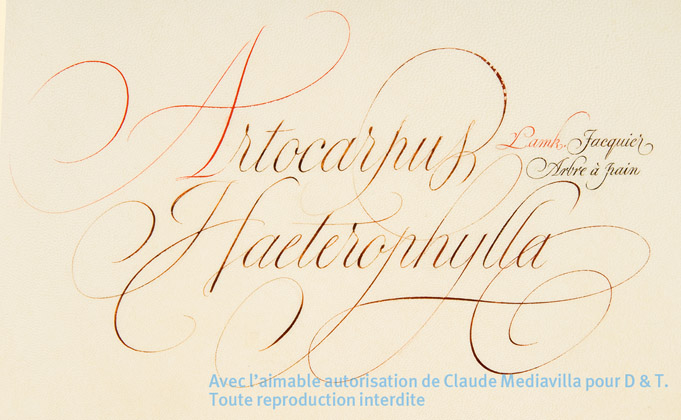 Artocarpus
Lamk. Jacquier
Arbre à pain
Haeterophylla
Avec l'aimable autorisation de Claude Mediavilla pour D & T.
Toute reproduction interdite